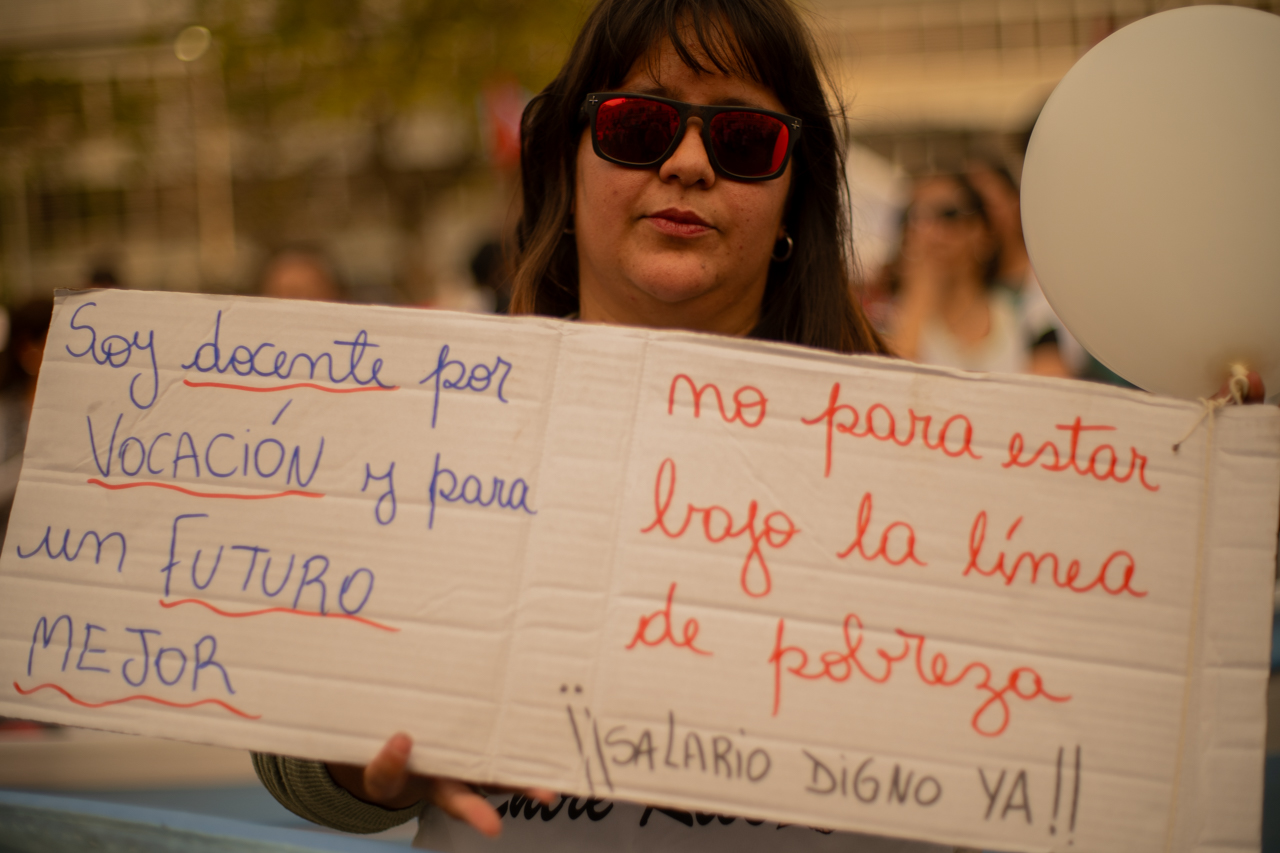 Soy docente por
VOCACIÓN y para
un FUTURO
MEJOR
no para estar
bajo la línea
de pobreza
¡¡SALARIO DIGNO YA!!